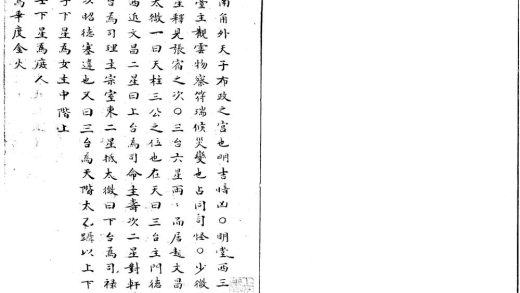 南角外天子布政之宮也明吉暗凶○明堂西三
堂主觀雲物察符瑞候災變也占同司怪○少微
星釋見張宿之次○三台六星兩兩而居起文昌
太微一曰天柱三公之位也在天曰三台主開德
西近文昌二星曰上台為司命主壽次二星對軒
台為司理主宗室東二星抵太微曰下台為司祿
次昭德塞違也又曰三台為天階太乙躡以上下
子下星為女主中階上
士下星為庶人
度金火